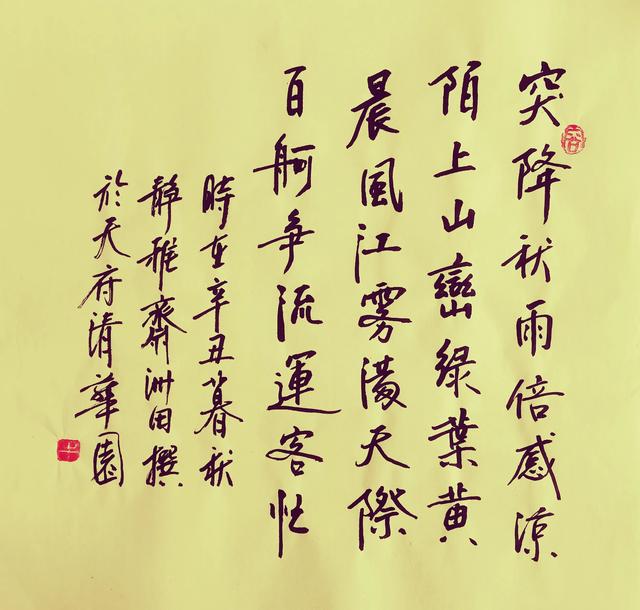 突降秋雨倍感涼
陌上山巒綠葉黄
晨風江雾漫天際
百舸争流運客忙
時在辛丑暮秋
静雅齋洲田撰
於天府清華園